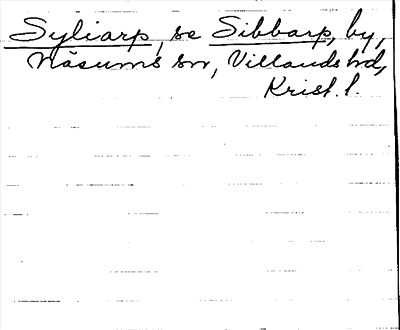 Syliarp, se Sibbarp, by,
Näsums sn, Villands hd,
Krist. l.